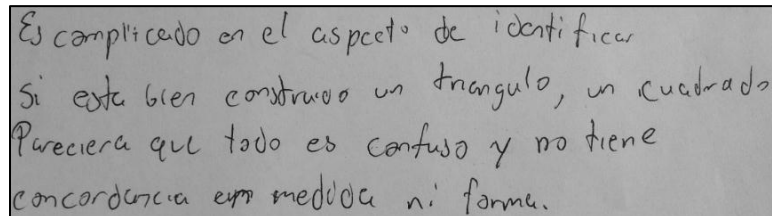 Es complicado en el aspecto de identificar
si esta bien construido un triangulo, un cuadrado
Pareciera que todo es confuso y no tiene
concordancia en medida ni forma.